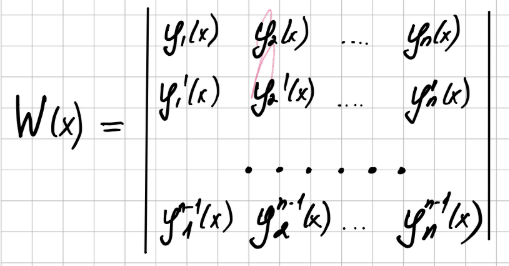 y₁(x) y₂(x) .... yₙ(x)
y₁'(x) y₂'(x) .... yₙ'(x)
W(x) =
. . . . . .
y₁ⁿ⁻¹(x) y₂ⁿ⁻¹(x) ... yₙⁿ⁻¹(x)